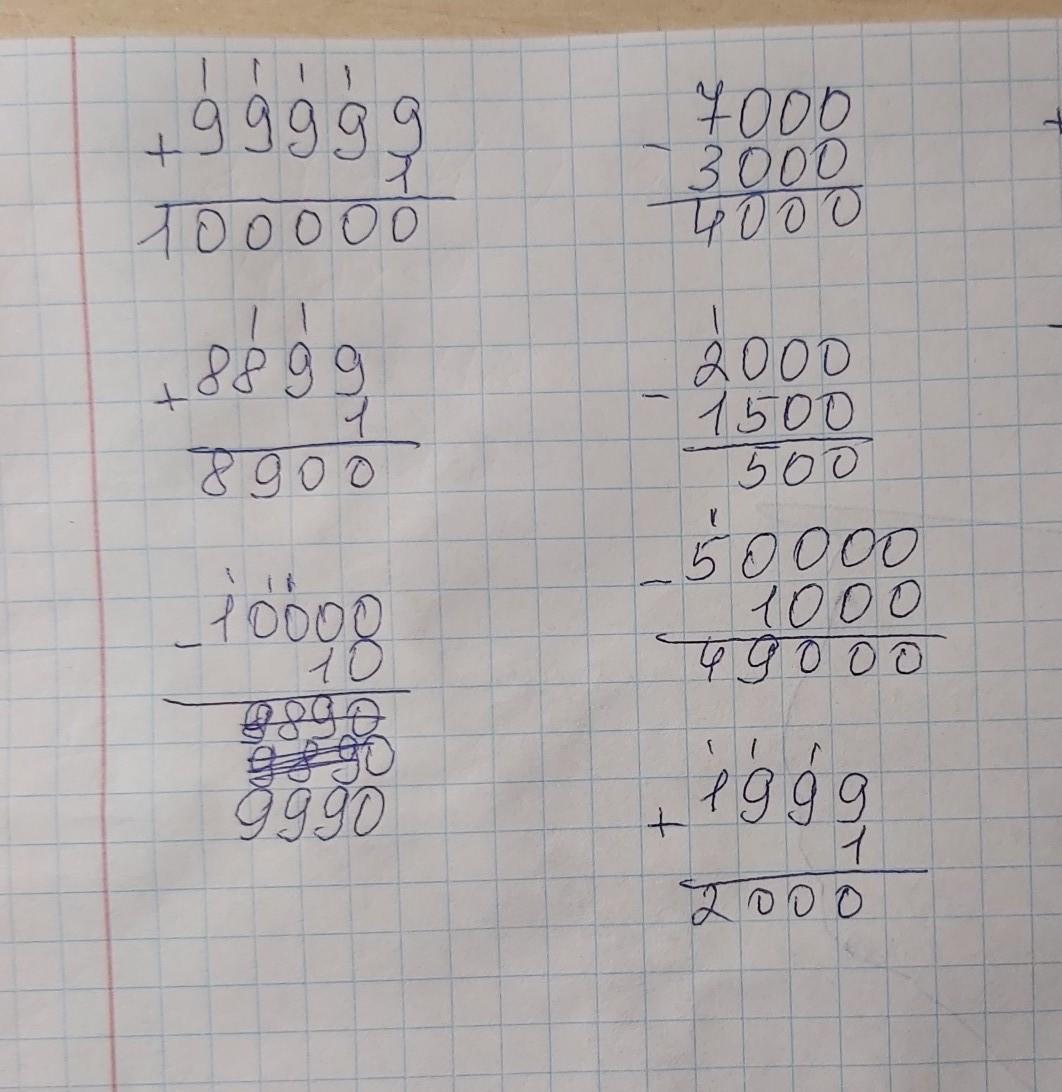 1 1 1 1
+ 99999
1
100000
1 1
+ 8899
1
8900
1 1 1
- 10000
10
9890
9890
9990
7000
- 3000
4000
1
2000
- 1500
500
1
- 50000
1000
49000
1 1 1
+ 1999
1
2000
+
-